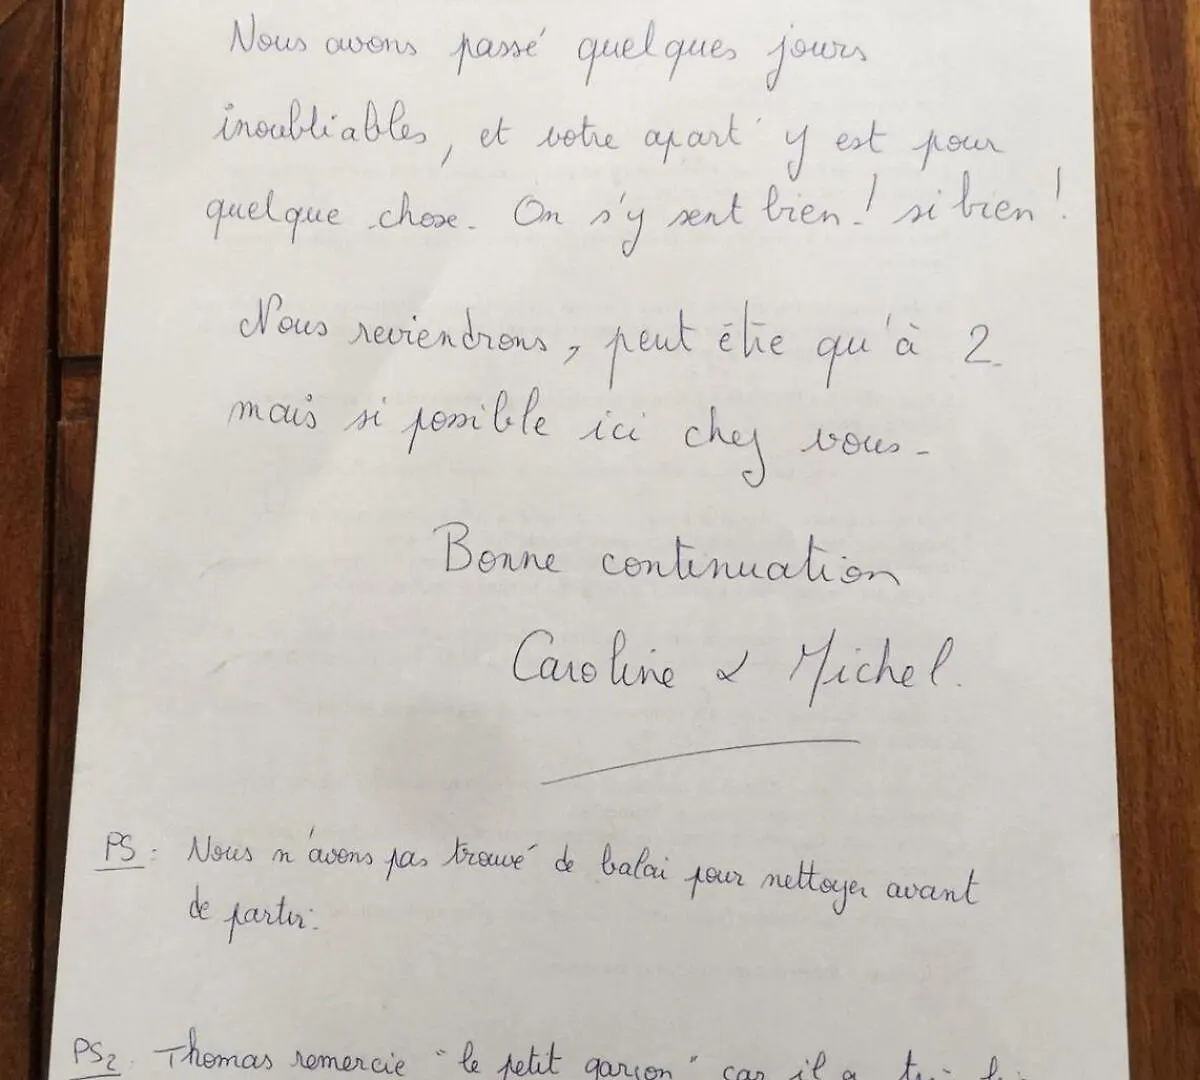 Nous avons passé quelques jours
inoubliables, et votre apart' y est pour
quelque chose. On s'y sent bien! si bien!
Nous reviendrons, peut être qu'à 2
mais si possible ici chez vous -
Bonne continuation
Caroline & Michel.
PS: Nous n'avons pas trouvé de balai pour nettoyer avant
de partir.
PS2 Thomas remercie "le petit garçon" car il a